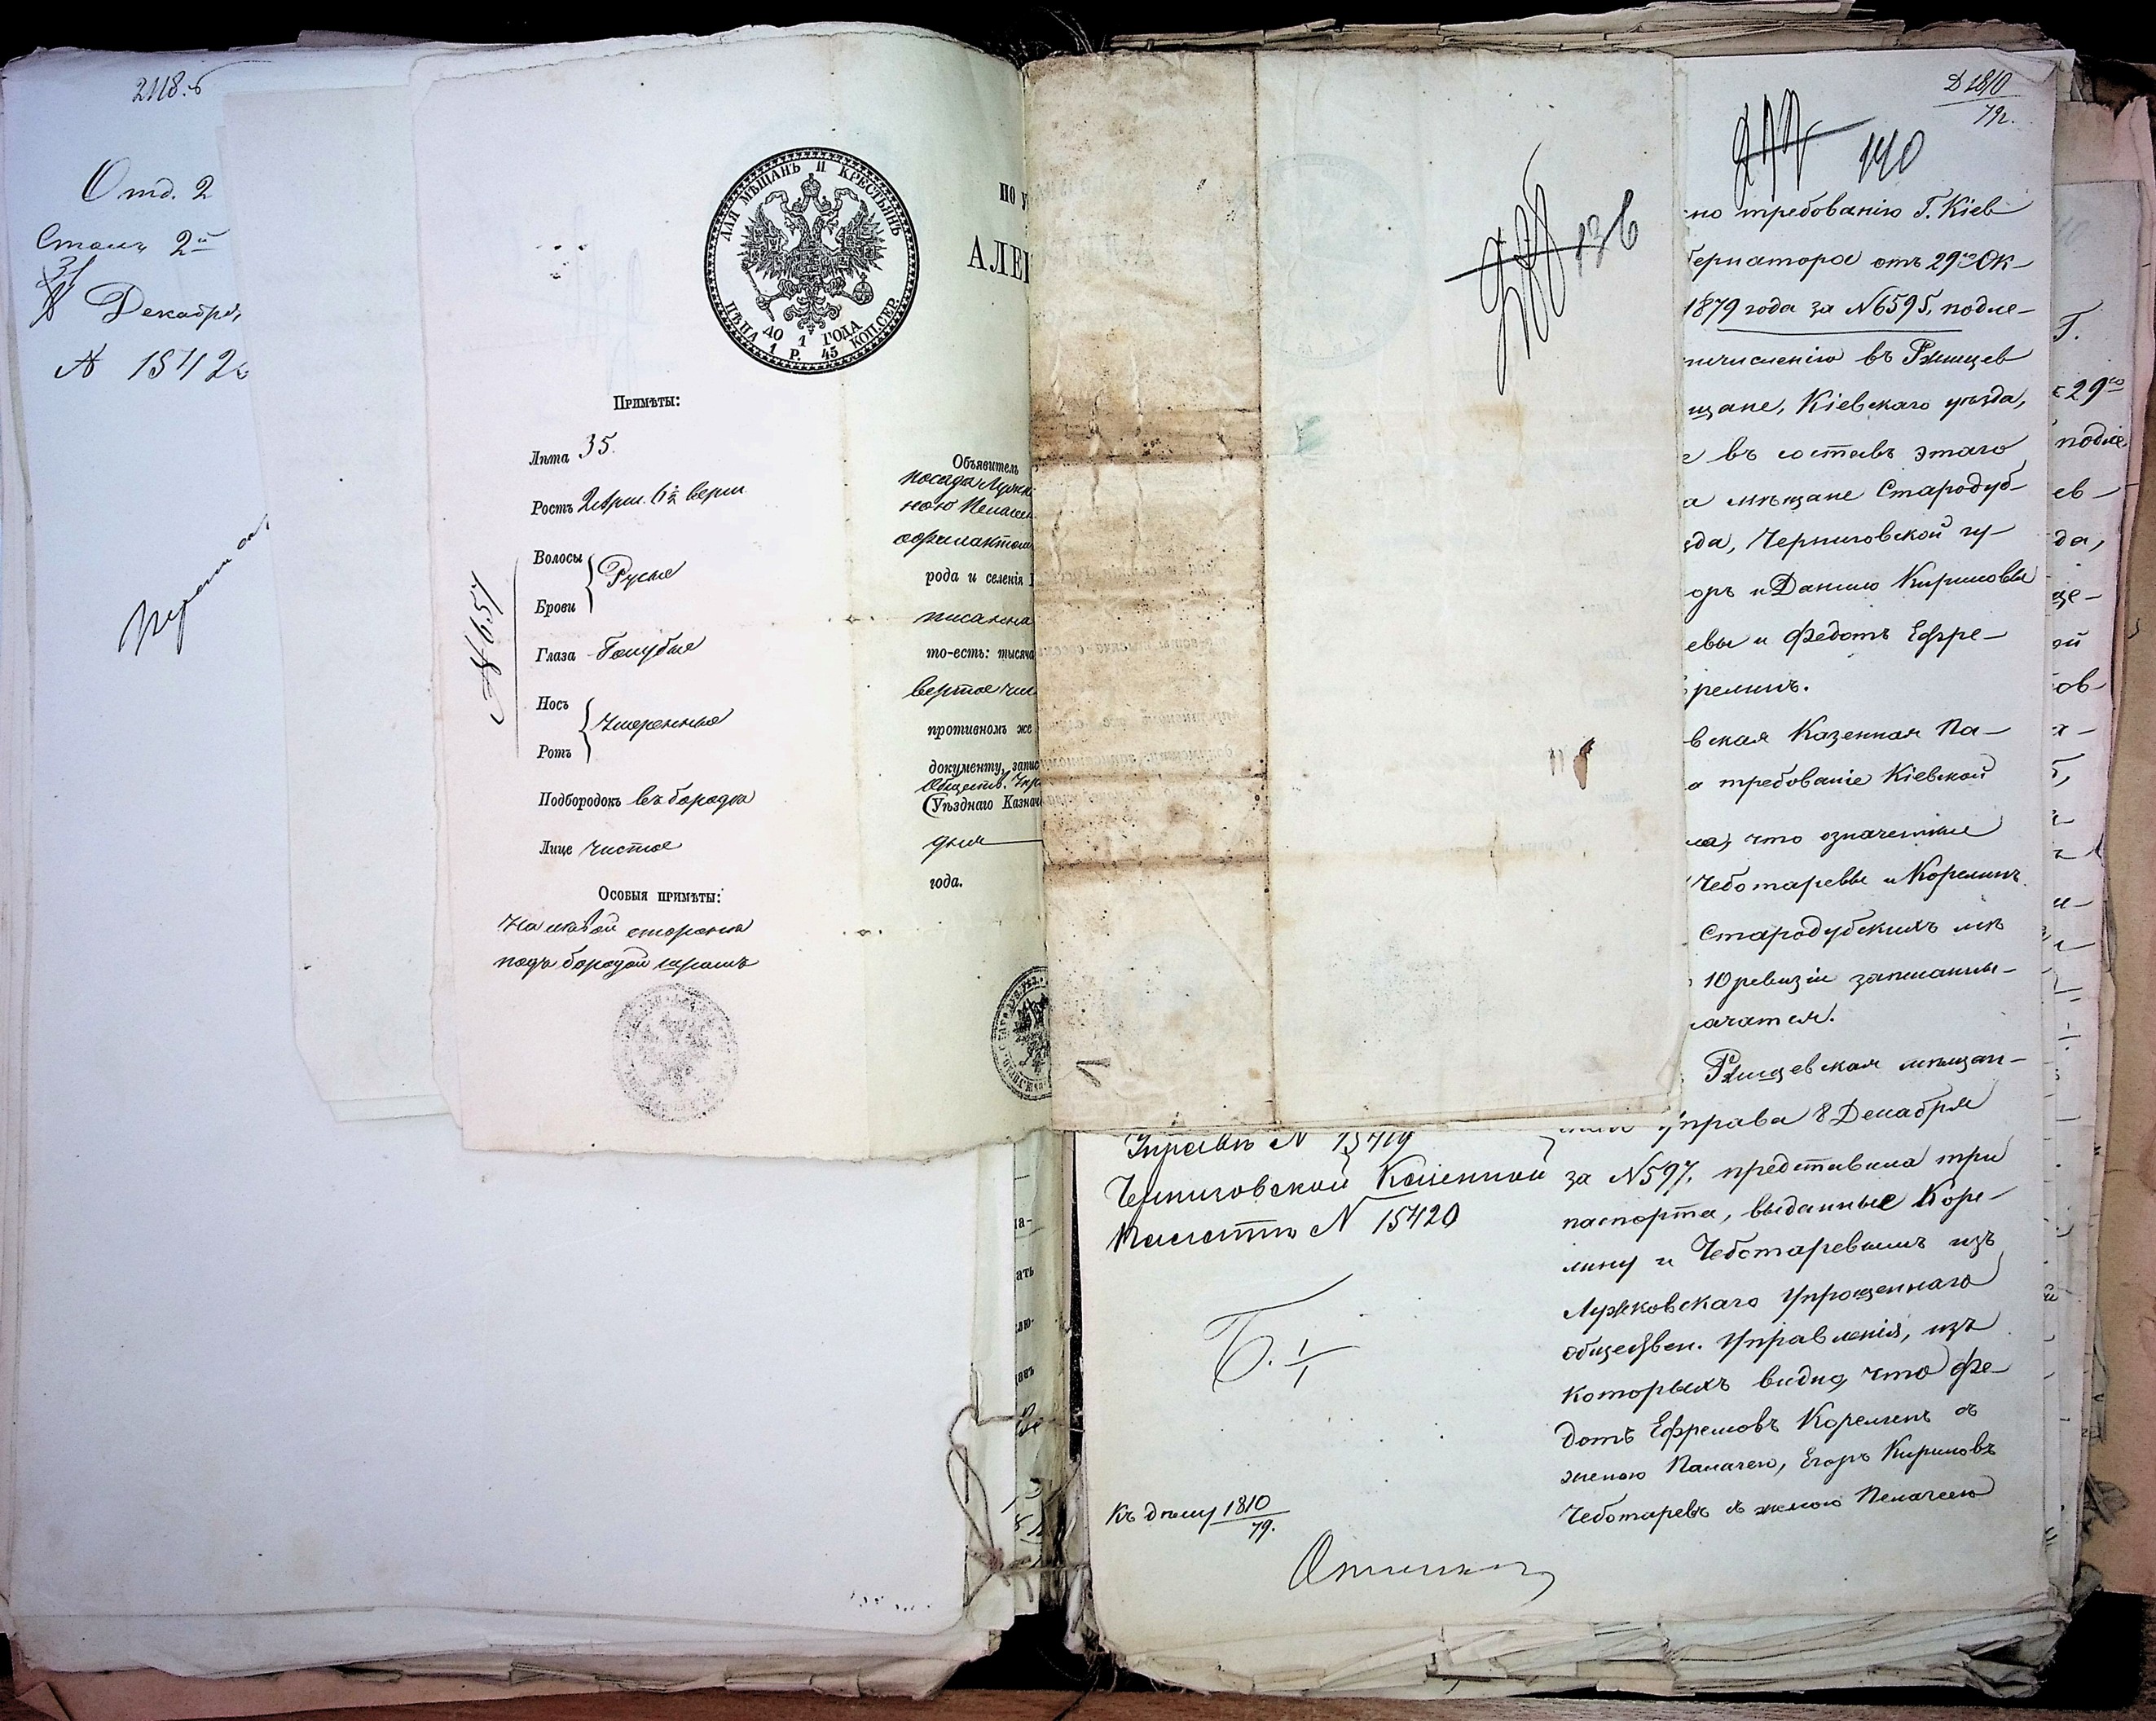 2118.б
Отд. 2
Столъ 2й
31
Декабря
N 1542
ДЛЯ МѢЩАНЪ И КРЕСТЬЯНЪ
ЦѢНА 1 Р. 45 КОП. СЕР.
ДО 1 ГОДА
Примѣты:
Лѣта 35.
Ростъ 2 Арш. 6½ верш.
Волосы
Русые
Брови
Глаза Голубые
Носъ
Умеренные
Ротъ
Подбородокъ въ бороде
Лице чистое
Особыя примѣты:
На левой стороне
подъ бородой шрамъ
N 657
по у
АЛЕ
Объявитель
посада Лужк
ною Пелаге
рода и селенія
писанна
то-есть: тысяча
вертое чис
противномъ же
документу, запис
Обществ. Упр
(Уѣзднаго Казнач
дня
года.
136
Д 1810
79г.
140
но требованію Г. Кіев
бернатора отъ 29го Ок-
1879 года за N 6595, подле-
ричисленію въ Ржищев
щане, Кіевскаго уѣзда,
е въ составъ этаго
а мѣщане Стародуб-
зда, Черниговской гу-
оръ и Данило Кириловы
евы и Федотъ Ефре-
релинъ.
вская Казенная Па-
а требованіе Кіевской
ла, что означенные
Чеботаревы и Корелинъ
Стародубскихъ мѣ
10 ревизіи записанны-
начатся.
Ржищевская мѣщан-
ская Управа 8 Декабря
за N 597, представила три
паспорта, выданные Коре-
лину и Чеботаревымъ изъ
Лужковскаго Упрощеннаго
обществен. Управленія, изъ
которыхъ видно, что Фе-
дотъ Ефремовъ Корелинъ съ
женою Палагею, Егоръ Кириловъ
Чеботаревъ съ женою Пелагеею
Управѣ N 15419
Черниговской Казенной
Палатѣ N 15420
Къ дѣлу 1810
79.
Г.
29го
подле
ев-
да,
ще-
ой
ов-